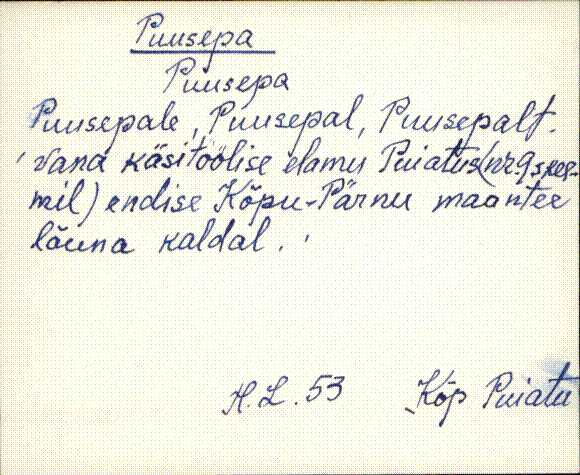 Puusepa
Puusepa
Puusepale, Puusepal, Puusepalt.
'Vana käsitöölise elamu Puiatus (nr. 9 skee-
mil) endise Kõpu-Pärnu maantee
lõuna kaldal.'
H. L. 53 Kõp Puiatu